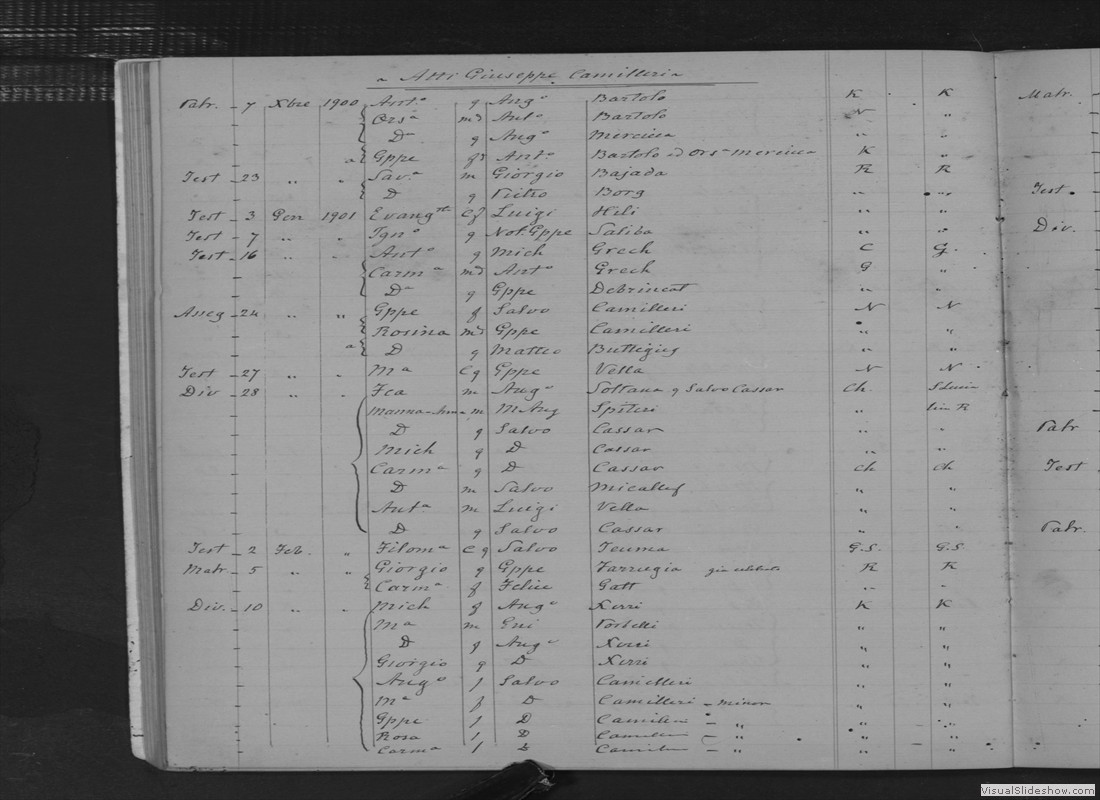 Atti Giuseppe Camilleri
Patr. 7 Xbre 1900 Ant.o g Ang.o Bartolo K K Matr.
Ors.a md Ant.o Bartolo N "
D.a g Ang.o Mercieca " "
a Gppe gs Ant.o Bartolo ed Ors.a Mercieca K "
Test 23 " " Sav.a m Giorgio Bajada K K
D g Pietro Borg " " Test.
Test 3 Gen 1901 Evang.ta Cf Luigi Hili " "
Test 7 " " Ign.o g Not. Gppe Saliba " " Div.
Test 16 " " Ant.o g Mich Grech C G.
Carm.a md Ant.o Grech G "
D.a g Gppe Debrincat " "
Asseg 24 " " Gppe f Salvo Camilleri N N
Rosina md Gppe Camilleri " "
a D g Matteo Buttigieg " "
Test 27 " " M.a Cg Gppe Vella N N
Div 28 " " Fca m Aug.o Soltana g Salvo Cassar Ch.
m M Ang Spiteri "
D g Salvo Cassar " " Patr
Mich g D Cassar " "
Carm.a g D Cassar Ch Ch Test
D m Salvo Micallef " "
Ant.a m Luigi Vella " "
D g Salvo Cassar " " Patr.
Test 2 Feb. " Filom.a C g Salvo Teuma G.S. G.S.
Matr 5 " " Giorgio g Gppe Farrugia già celebrato K K
Carm.a f Felice Gatt " "
Div. 10 " " Mich g Ang.o Xerri K K
M.a m Portelli " "
D g Ang.o Xerri " "
Giorgio g D Xerri " "
Ang.o f Salvo Camilleri " "
M.a f D Camilleri – minor " "
Gppe f D Camilleri – " " "
Rosa f D Camilleri – " " "
Carm.a f D Camilleri – " " "
VisualSlideshow.com